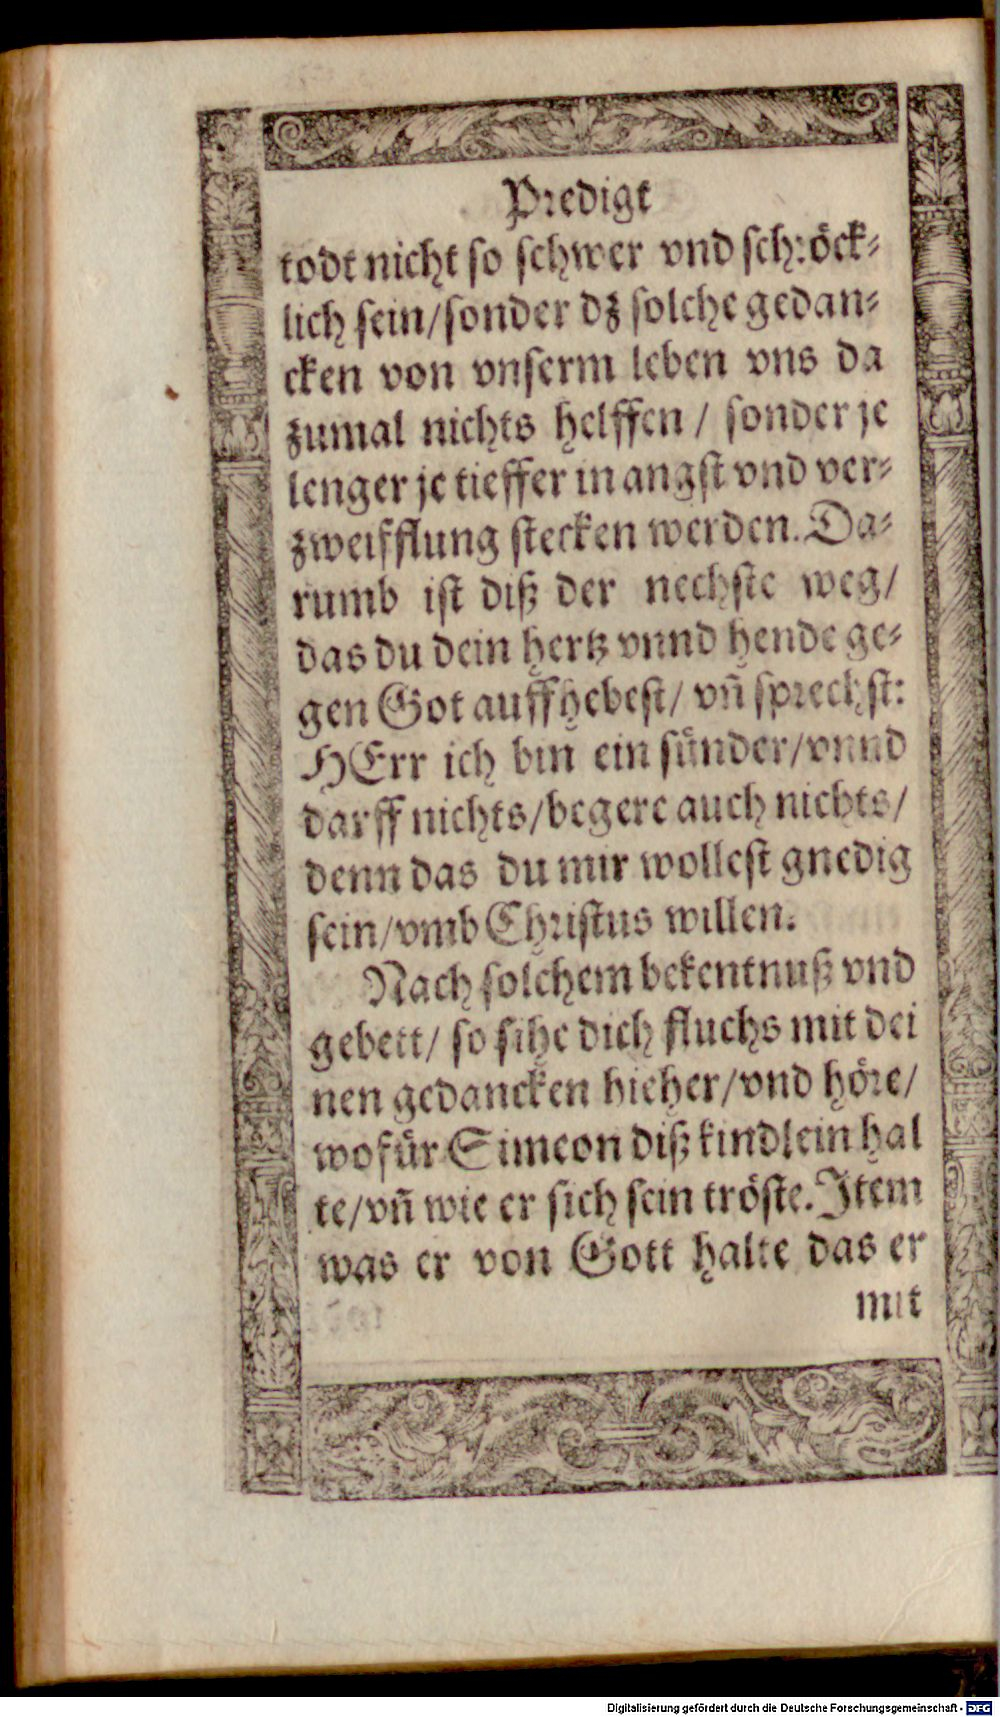 Predigt
todt nicht so schwer vnd schröck-
lich sein/sonder dz solche gedan-
cken von vnserm leben vns da
zumal nichts helffen / sonder je
lenger je tieffer in angst vnd ver-
zweifflung stecken werden. Da-
rumb ist diß der nechste weg/
das du dein hertz vnnd hende ge-
gen Got auffhebest/ vñ sprechst:
HErr ich bin ein sünder/vnnd
darff nichts/begere auch nichts/
denn das du mir wollest gnedig
sein/vmb Christus willen.
Nach solchem bekentnuß vnd
gebett/ so sihe dich fluchs mit dei
nen gedancken hieher/vnd höre/
wofür Simeon diß kindlein hal
te/vñ wie er sich sein tröste. Item
was er von Gott halte das er
mit
Digitalisierung gefördert durch die Deutsche Forschungsgemeinschaft - DFG